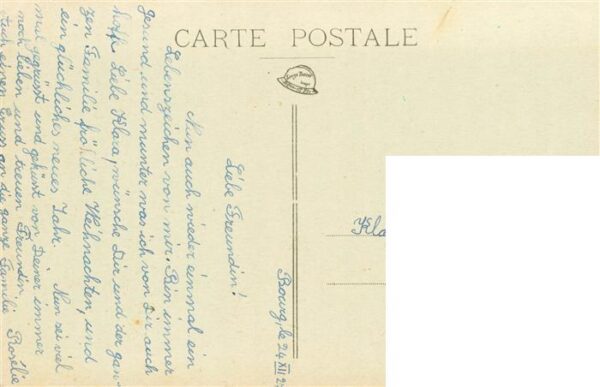 CARTE POSTALE
Bourg, le 24 XII 2
Liebe Freundin!
Nun auch wieder einmal ein
Lebenszeichen von mir. Bin immer
gesund und munter was ich von Dir auch
hoffe. Liebe Klara, wünsche Dir und der gan-
zen Familie fröhliche Weihnachten, und
ein glückliches neues Jahr. Nun sei viel
mal gegrüsst und geküsst von Deiner immer
noch lieben und treuen Freundin Rosélie
einen Gruss an die ganze Familie
Kla